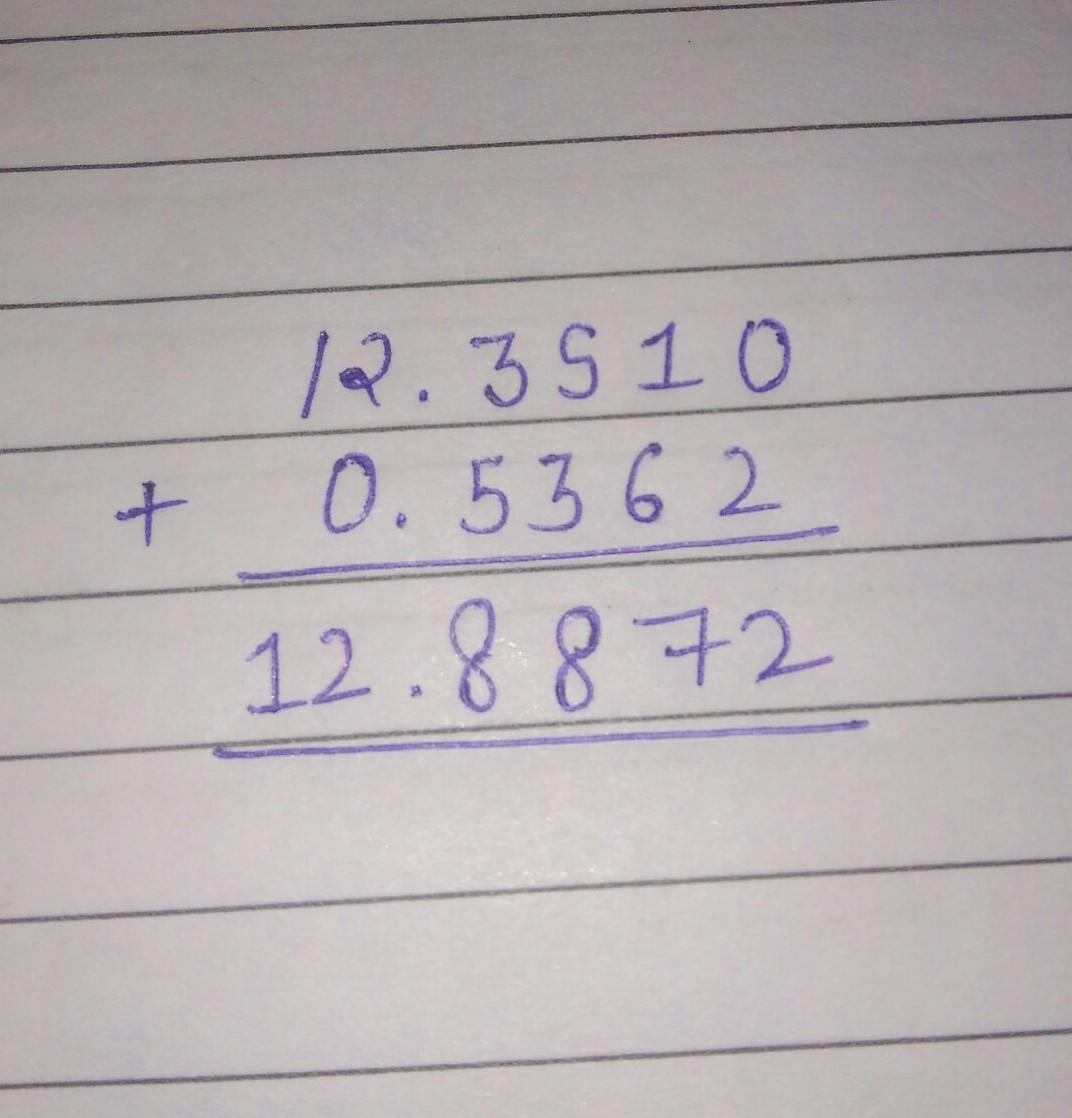 12.3510
+ 0.5362
12.8872